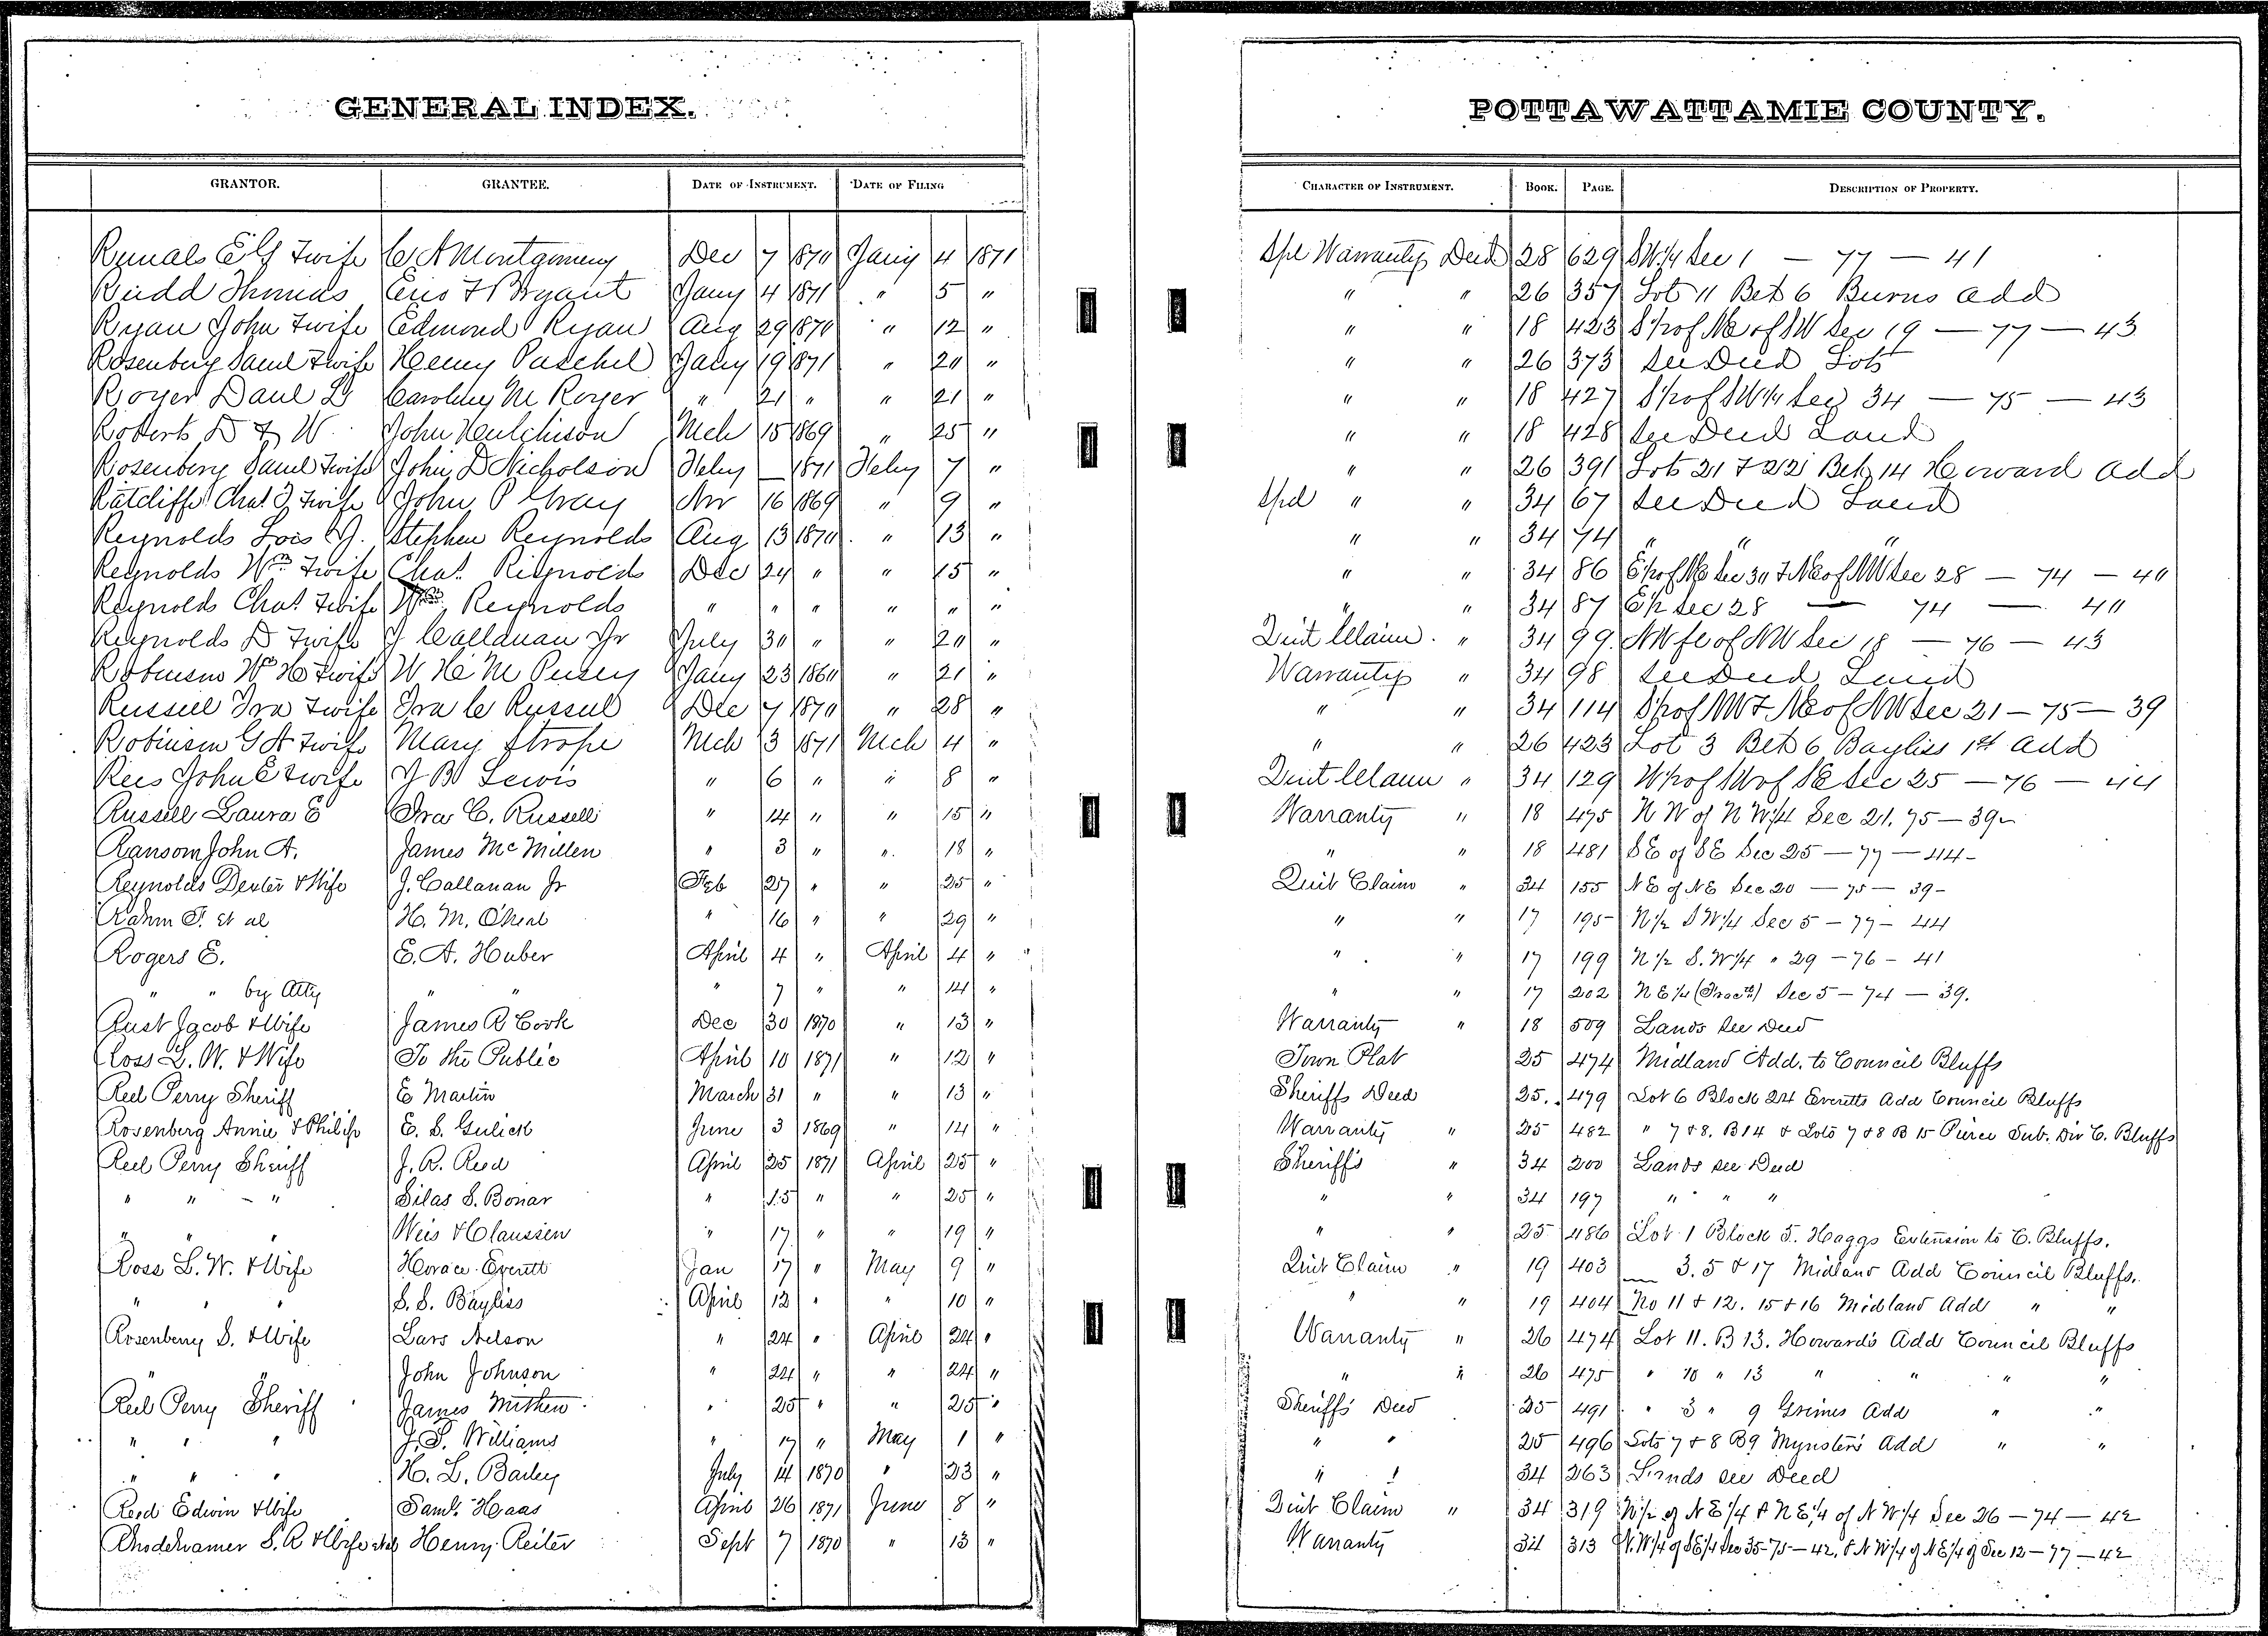 GENERAL INDEX. POTTAWATTAMIE COUNTY.
GRANTOR. GRANTEE. DATE OF INSTRUMENT. DATE OF FILING CHARACTER OF INSTRUMENT. BOOK. PAGE. DESCRIPTION OF PROPERTY.
& wife C A Montgomery Dec 7 1870 Jany 4 1871 Spl Warranty Deed 28 629 SW¼ Sec 1 — 77 — 41
Rudd Thomas Bryant Jany 4 1871 " 5 " " " 26 357 Lot 11 Blk 6 Burns Add
Ryan John & wife Edmond Ryan Aug 29 1870 " 12 " " " 18 423 S½ of NE of SW Sec 19 — 77 — 43
Rosenberg Saml & wife Henry Paschel Jany 19 1871 " 20 " " " 26 373 See Deed Lots
Royer Danl L Caroline M Royer " 21 " " 21 " " " 18 427 S½ of SW¼ Sec 34 — 75 — 43
Roberts D & W John Hutchison Mch 15 1869 " 25 " " " 18 428 See Deed Land
Rosenberg Saml & wife John D Nicholson Feby — 1871 Feby 7 " " " 26 391 Lots 21 & 22 Blk 14 Howard Add
Ratcliffe Chas & wife John P Gray Nov 16 1869 " 9 " Spcl " " 34 67 See Deed Land
Reynolds Lois J. Stephen Reynolds Aug 13 1870 " 13 " " " 34 74 " " "
Reynolds Wm & wife Chas Reynolds Dec 24 " " 15 " " " 34 86 E½ of NE Sec 30 & NE of NW Sec 28 — 74 — 40
Reynolds Chas & wife Wm Reynolds " " " " " " " " 34 87 E½ Sec 28 — 74 — 40
Reynolds D & wife J Callanan Jr July 30 " " 20 " Quit Claim " 34 99 NW fl of NW Sec 18 — 76 — 43
Robinson Wm H & wife W H M Pusey Jany 23 1860 " 21 " Warranty " 34 98 See Deed Land
Russell Ira & wife Ira C Russel Dec 7 1870 " 28 " " " 34 114 S½ of NW & NE of NW Sec 21 — 75 — 39
Robinson G A & wife Mary Strope Mch 3 1871 Mch 4 " " " 26 423 Lot 3 Blk 6 Bayliss 1st Add
Rees John E & wife J B Lewis " 6 " " 8 " Quit Claim " 34 129 W½ of SW of SE Sec 25 — 76 — 44
Russell Laura E Ira C. Russell " 14 " " 15 " Warranty " 18 475 N W of N W¼ Sec 21. 75 — 39
Ransom John A. James McMillen " 3 " " 18 " " " 18 481 SE of SE Sec 25 — 77 — 44
Reynolds Dexter & Wife J. Callanan Jr Feb 27 " " 25 " Quit Claim " 34 155 NE of NE Sec 20 — 75 — 39
Rahm F. et al H. M. O'Neal " 16 " " 29 " " " 17 195 N½ SW¼ Sec 5 — 77 — 44
Rogers E. E. A. Huber April 4 " April 4 " " " 17 199 N½ S.W¼ " 29 — 76 — 41
" " by Atty " " " 7 " " 14 " " " 17 202 NE¼ (Fracl) Sec 5 — 74 — 39.
Rust Jacob & Wife James R Cook Dec 30 1870 " 13 " Warranty " 18 509 Lands See Deed
Ross L. W. & Wife To the Public April 10 1871 " 12 " Town Plat 25 474 Midland Add. to Council Bluffs
Reel Perry Sheriff E Martin March 31 " " 13 " Sheriffs Deed 25. 479 Lot 6 Block 24 Everetts Add Council Bluffs
Rosenberg Annie & Philip E. S. Gulick June 3 1869 " 14 " Warranty " 25 482 " 7 & 8. B 14 & Lots 7 & 8 B 15 Pierce Sub. Div C. Bluffs
Reel Perry Sheriff J. R. Reed April 25 1871 April 25 " Sheriff's " 34 200 Lands see Deed
" " " Silas S. Bonar " 15 " " 25 " " " 34 197 " " "
" " " Weis & Claussen " 17 " " 19 " " " 25 486 Lot 1 Block 5. Haggs Extension to C. Bluffs.
Ross L. W. & Wife Horace Everett Jan 17 " May 9 " Quit Claim " 19 403 3. 5 & 17 Midland Add Council Bluffs.
" " " S. S. Bayliss April 12 " " 10 " " " 19 404 No 11 & 12. 15 & 16 Midland Add " "
Rosenberry S. & Wife Lars Nelson " 24 " April 24 " Warranty " 26 474 Lot 11. B 13. Howard's Add Council Bluffs
" " John Johnson " 24 " " 24 " " " 26 475 " 10 " 13 " " " "
Reel Perry Sheriff James " 25 " " 25 " Sheriff's Deed 25 491 " 3 " 9 Grimes Add " "
" " " J. S. Williams " 17 " May 1 " " " 25 496 Lots 7 & 8 B9 Mynster's Add " "
" " " H. L. Bailey July 14 1870 " 23 " " " 34 263 Lands see Deed
Reed Edwin & Wife Saml. Haas April 26 1871 June 8 " Quit Claim " 34 319 N½ of NE¼ & NE¼ of NW¼ Sec 26 — 74 — 42
Rhodehamer S. R & Wife et al Henry Reiter Sept 7 1870 " 13 " Warranty 34 313 N.W¼ of SE¼ Sec 35-75-42, & NW¼ of NE¼ of Sec 12 — 77 — 42